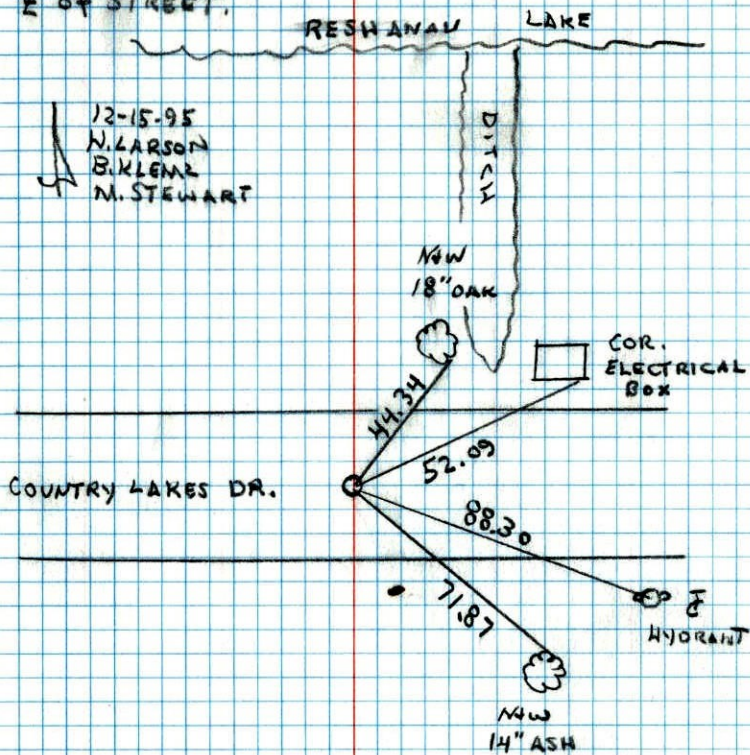 OF STREET.
RESHANAU LAKE
12-15-95
W. LARSON
B. KLEMZ
M. STEWART
DITCH
N&W
18" OAK
COR.
ELECTRICAL
BOX
44.34
52.09
COUNTRY LAKES DR.
88.30
71.87
HYDRANT
N&W
14" ASH